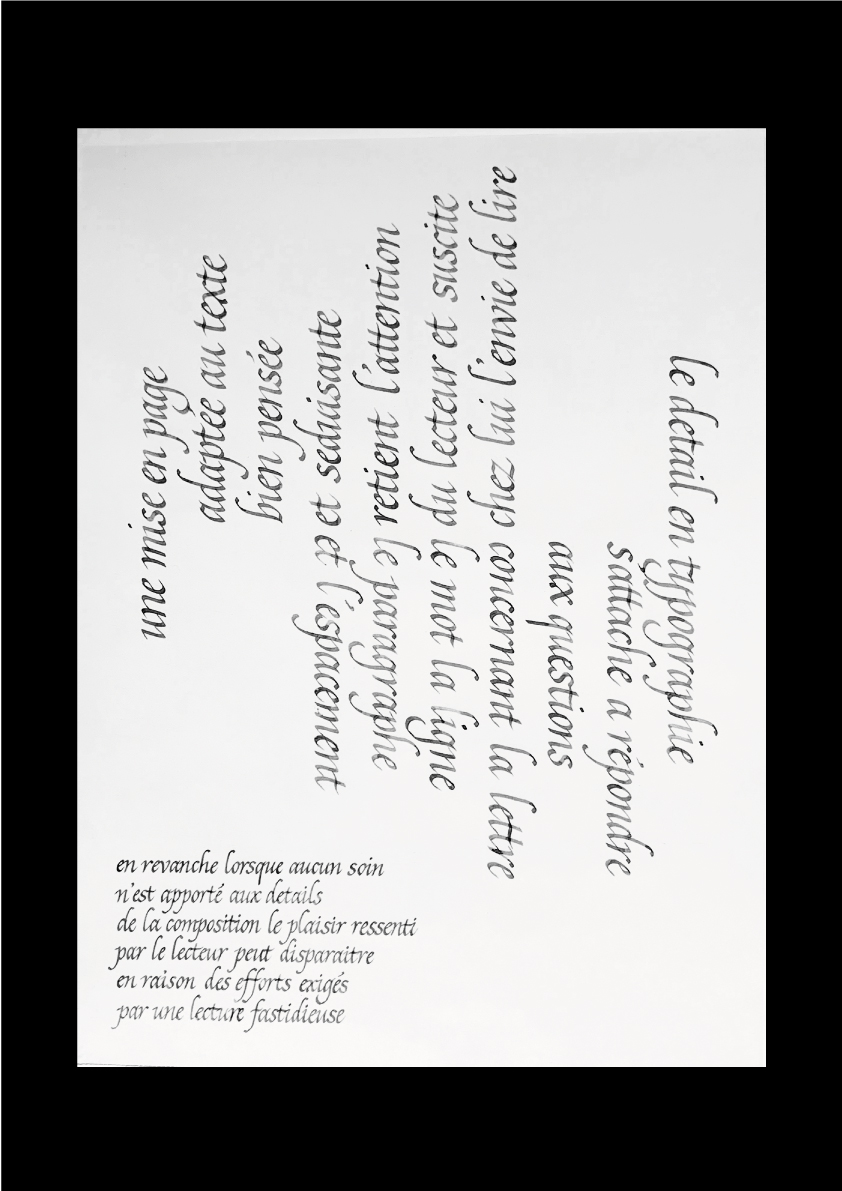 le detail en typographie
s'attache a répondre
aux questions
concernant la lettre
le mot la ligne
le paragraphe
et l'espacement
une mise en page
adaptée au texte
bien pensée
et seduisante
retient l'attention
du lecteur et suscite
chez lui l'envie de lire
en revanche lorsque aucun soin
n'est apporté aux details
de la composition le plaisir ressenti
par le lecteur peut disparaitre
en raison des efforts exigés
par une lecture fastidieuse